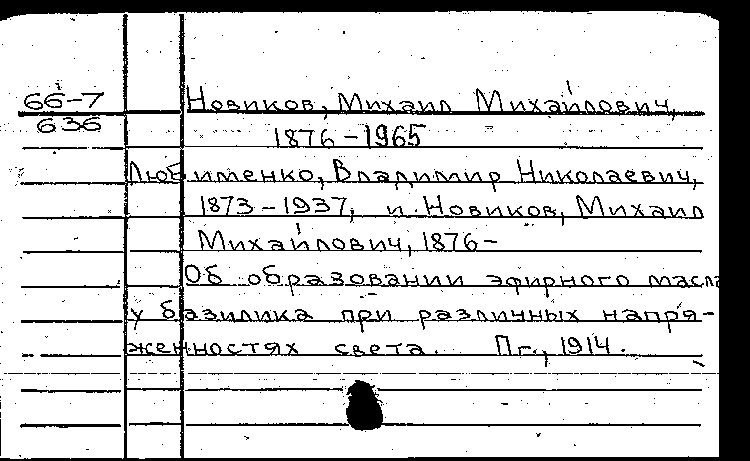 66-7
636
Новиков, Михаил Михайлович,
1876-1965
Любименко, Владимир Николаевич,
1873-1937, и Новиков, Михаил
Михайлович, 1876-
Об образовании эфирного масла
у базилика при различных напря-
женностях света. Пг., 1914.